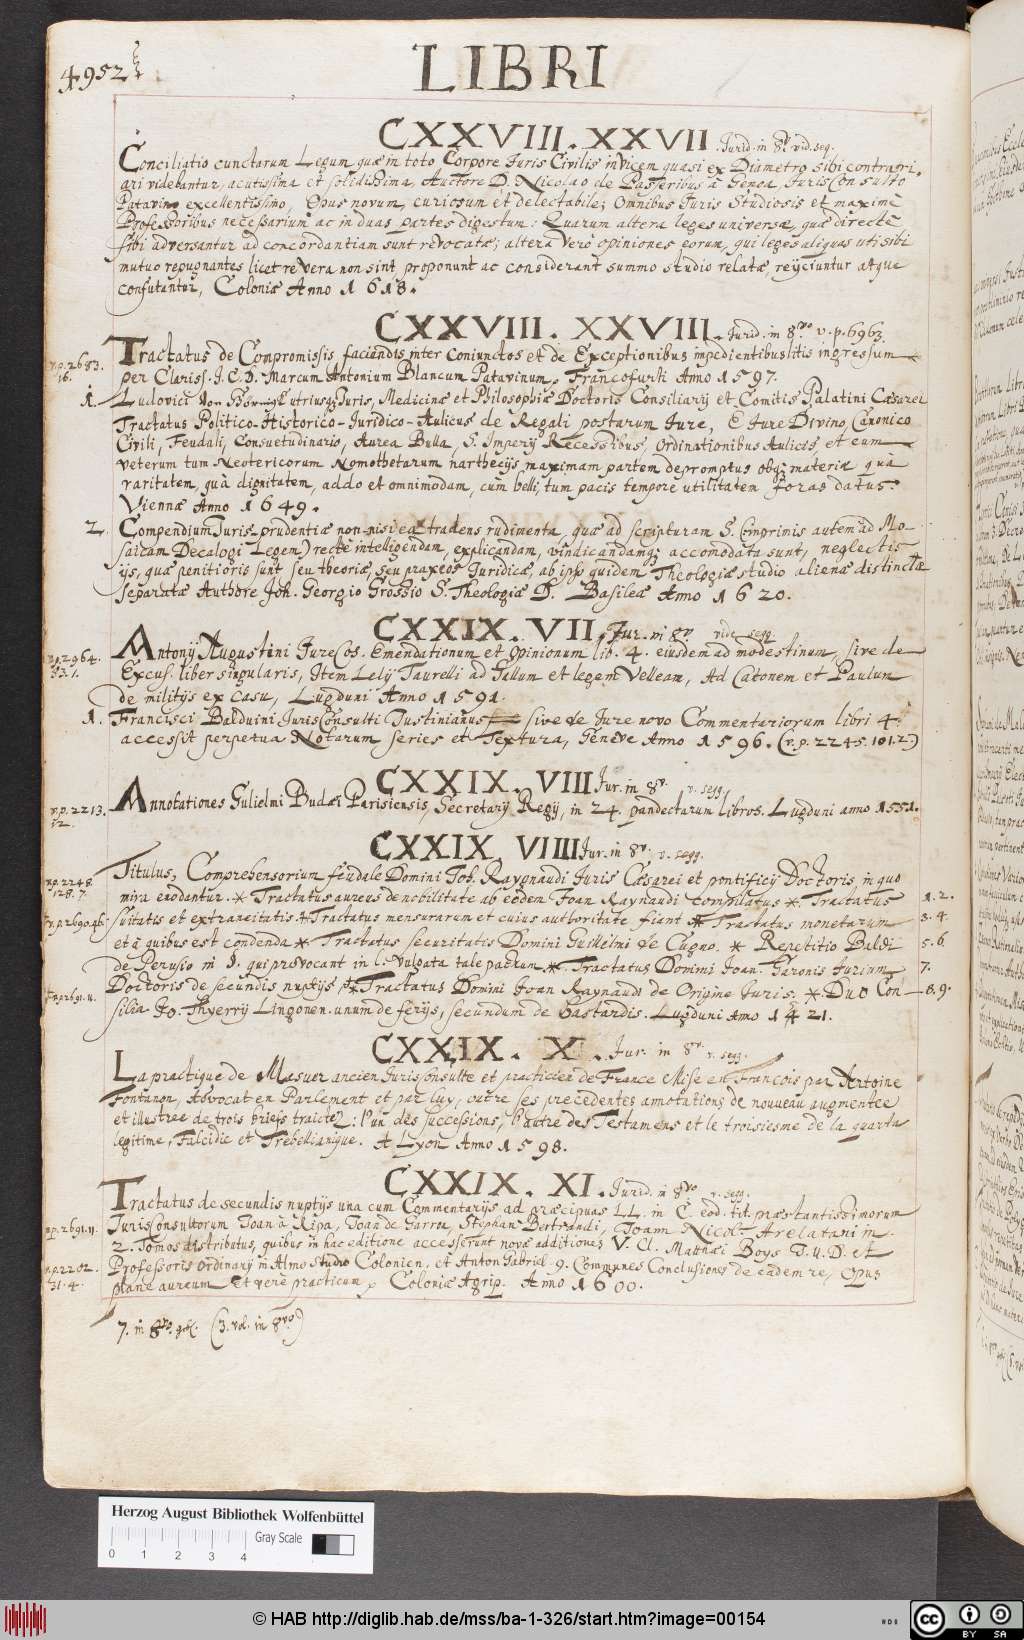 4952
LIBRI
CXXVIII. XXVII. Jurid. in 8° vid. seq.
Conciliatio cunctarum Legum quæ in toto Corpore Juris Civilis invicem quasi ex Diametro sibi contrari-
ari videbantur, acutissima et solidissima, Auctore D. Nicolao de Passeribus à Genoa, Jurisconsulto
Patavino excellentissimo, Opus novum, curiosum et delectabile; Omnibus Juris Studiosis et maximè
Professoribus necessarium ac in duas partes digestum: Quarum altera leges universæ, quæ directè
sibi adversantur ad concordantiam sunt revocatæ; altera verò opiniones eorum, qui leges aliquas uti sibi
mutuo repugnantes licet revera non sint proponunt ac considerant summo studio relatæ, reijciuntur atque
confutantur, Coloniæ Anno 1618.
CXXVIII. XXVIII. Jurid. in 8vo v. p. 6963.
v.p. 2683.
16.
Tractatus de Compromissis faciendis inter Coniunctos et de Exceptionibus impedientibus litis ingressum
per Clariss. J. C. D. Marcum Antonium Blancum Patavinum, Francofurti Anno 1597.
1. Ludovici von utriusq; Juris, Medicinæ et Philosophiæ Doctoris Consiliarij et Comitis Palatini Cæsarei
Tractatus Politico-Historico-Juridico-Aulicus de Regali postarum Jure, E Jure Divino, Canonico
Civili, Feudali, Consuetudinario, Aurea Bulla, S. Imperij Recessibus, Ordinationibus Aulicis, et cum
veterum tum Neotericorum Nomothetarum narthecijs maximam partem depromptus obq; materiæ quà
raritatem, quà dignitatem, addo et omnimodam, cum belli, tum pacis tempore utilitatem foras datus.
Viennæ Anno 1649.
2. Compendium Jurisprudentiæ non nisi ea tradens rudimenta, quæ ad scripturam S. (imprimis autem ad Mo-
saicam Decalogi Legem) rectè intelligendam, explicandam, vindicandamq; accomodata sunt, neglectis
ijs, quæ penitioris sunt seu theoriæ, seu praxeos Juridicæ, ab ipso quidem Theologiæ studio alienæ distinctæ
separatæ Authore Joh. Georgio Grossio S. Theologiæ D. Basileæ Anno 1620.
CXXIX. VII. Jur. in 8° vide segg
v.p. 2964.
83. 1.
Antonij Augustini JureCos. Emendationum et Opinionum lib. 4. eiusdem ad modestinum, sive de
Excus. liber singularis, Item Lelij Taurelli ad Gallum et legem Velleam, Ad Catonem et Paulum
de militijs ex casu, Lugduni Anno 1591.
1. Francisci Balduini JurisConsulti Justinianus sive de Jure novo Commentariorum libri 4.
accessit perpetua Notarum series et Textura, Geneve Anno 1596. (v. p. 2245. 101. 2.)
CXXIX. VIII Jur. in 8° v. segg.
v.p. 2213.
12.
Annotationes Gulielmi Budæi Parisiensis, Secretarij Regij, in 24. pandectarum libros. Lugduni anno 1551.
CXXIX. VIIII Jur. in 8° v. segg.
v.p. 2248.
128. 7.
Titulus, Comprehensorium feudale Domini Joh. Raynaudi Juris Cæsarei et pontificij Doctoris, in quo
mira exodantur. * Tractatus aureus de nobilitate ab eodem Joan Raynaudi compilatus *. Tractatus 1. 2.
suitatis et extraneitatis * Tractatus mensurarum et cuius authoritate fiant * Tractatus monetarum 3. 4.
et à quibus est condenda * Tractatus securitatis Domini Guilielmi de Cugno. * Repetitio Baldi 5. 6
de Perusio in §. qui provocant in l. vulgata tale pactum. * Tractatus Domini Joan. Garonis Jurium 7.
Doctoris de secundis nuptijs * Tractatus Domini Joan Raynaudi de Origine Juris. * Duo Con- 8. 9.
silia Jo. Thyerrij Lingonen. unum de ferijs, secundum de bastardis. Lugduni Anno 1421.
CXXIX. X. Jur. in 8° v. segg.
La practique de Masuer ancien Jurisconsulte et practicien de France Mise en Francois par Antoine
Fontanon, Advocat en Parlement et par luy, outre ses precedentes annotations de nouveau augmentee
et illustree de trois briefs traictez: l'un des successions, l'autre des Testamens et le troisiesme de la quarta
legitime, Falcidie et Trebellianique. A Lyon Anno 1598.
CXXIX. XI. Jurid. in 8vo v. segg.
v.p. 2691. 11.
v.p. 2202.
31. 4.
Tractatus de secundis nuptijs una cum Commentarijs ad præcipuas LL. in C. eod. tit. præstantissimorum
JurisConsultorum Joan à Ripa, Joan de Garro, Stephan Bertrandi, Joann Nicol. Arelatani in
2. Tomos distributus, quibus in hac editione accesserunt novæ additiones V. Cl. Matthæi Boys J. U. D. et
Professoris ordinarij in Almo studio Colonien, et Anton Gabriel 9. Communes Conclusiones de eadem re, Opus
plane aureum et verè practicum, Coloniæ Agrip. Anno 1600.
7. in 8vo. (3. vol. in 8vo)
Herzog August Bibliothek Wolfenbüttel
Gray Scale
0 1 2 3 4
© HAB http://diglib.hab.de/mss/ba-1-326/start.htm?image=00154
cc BY SA